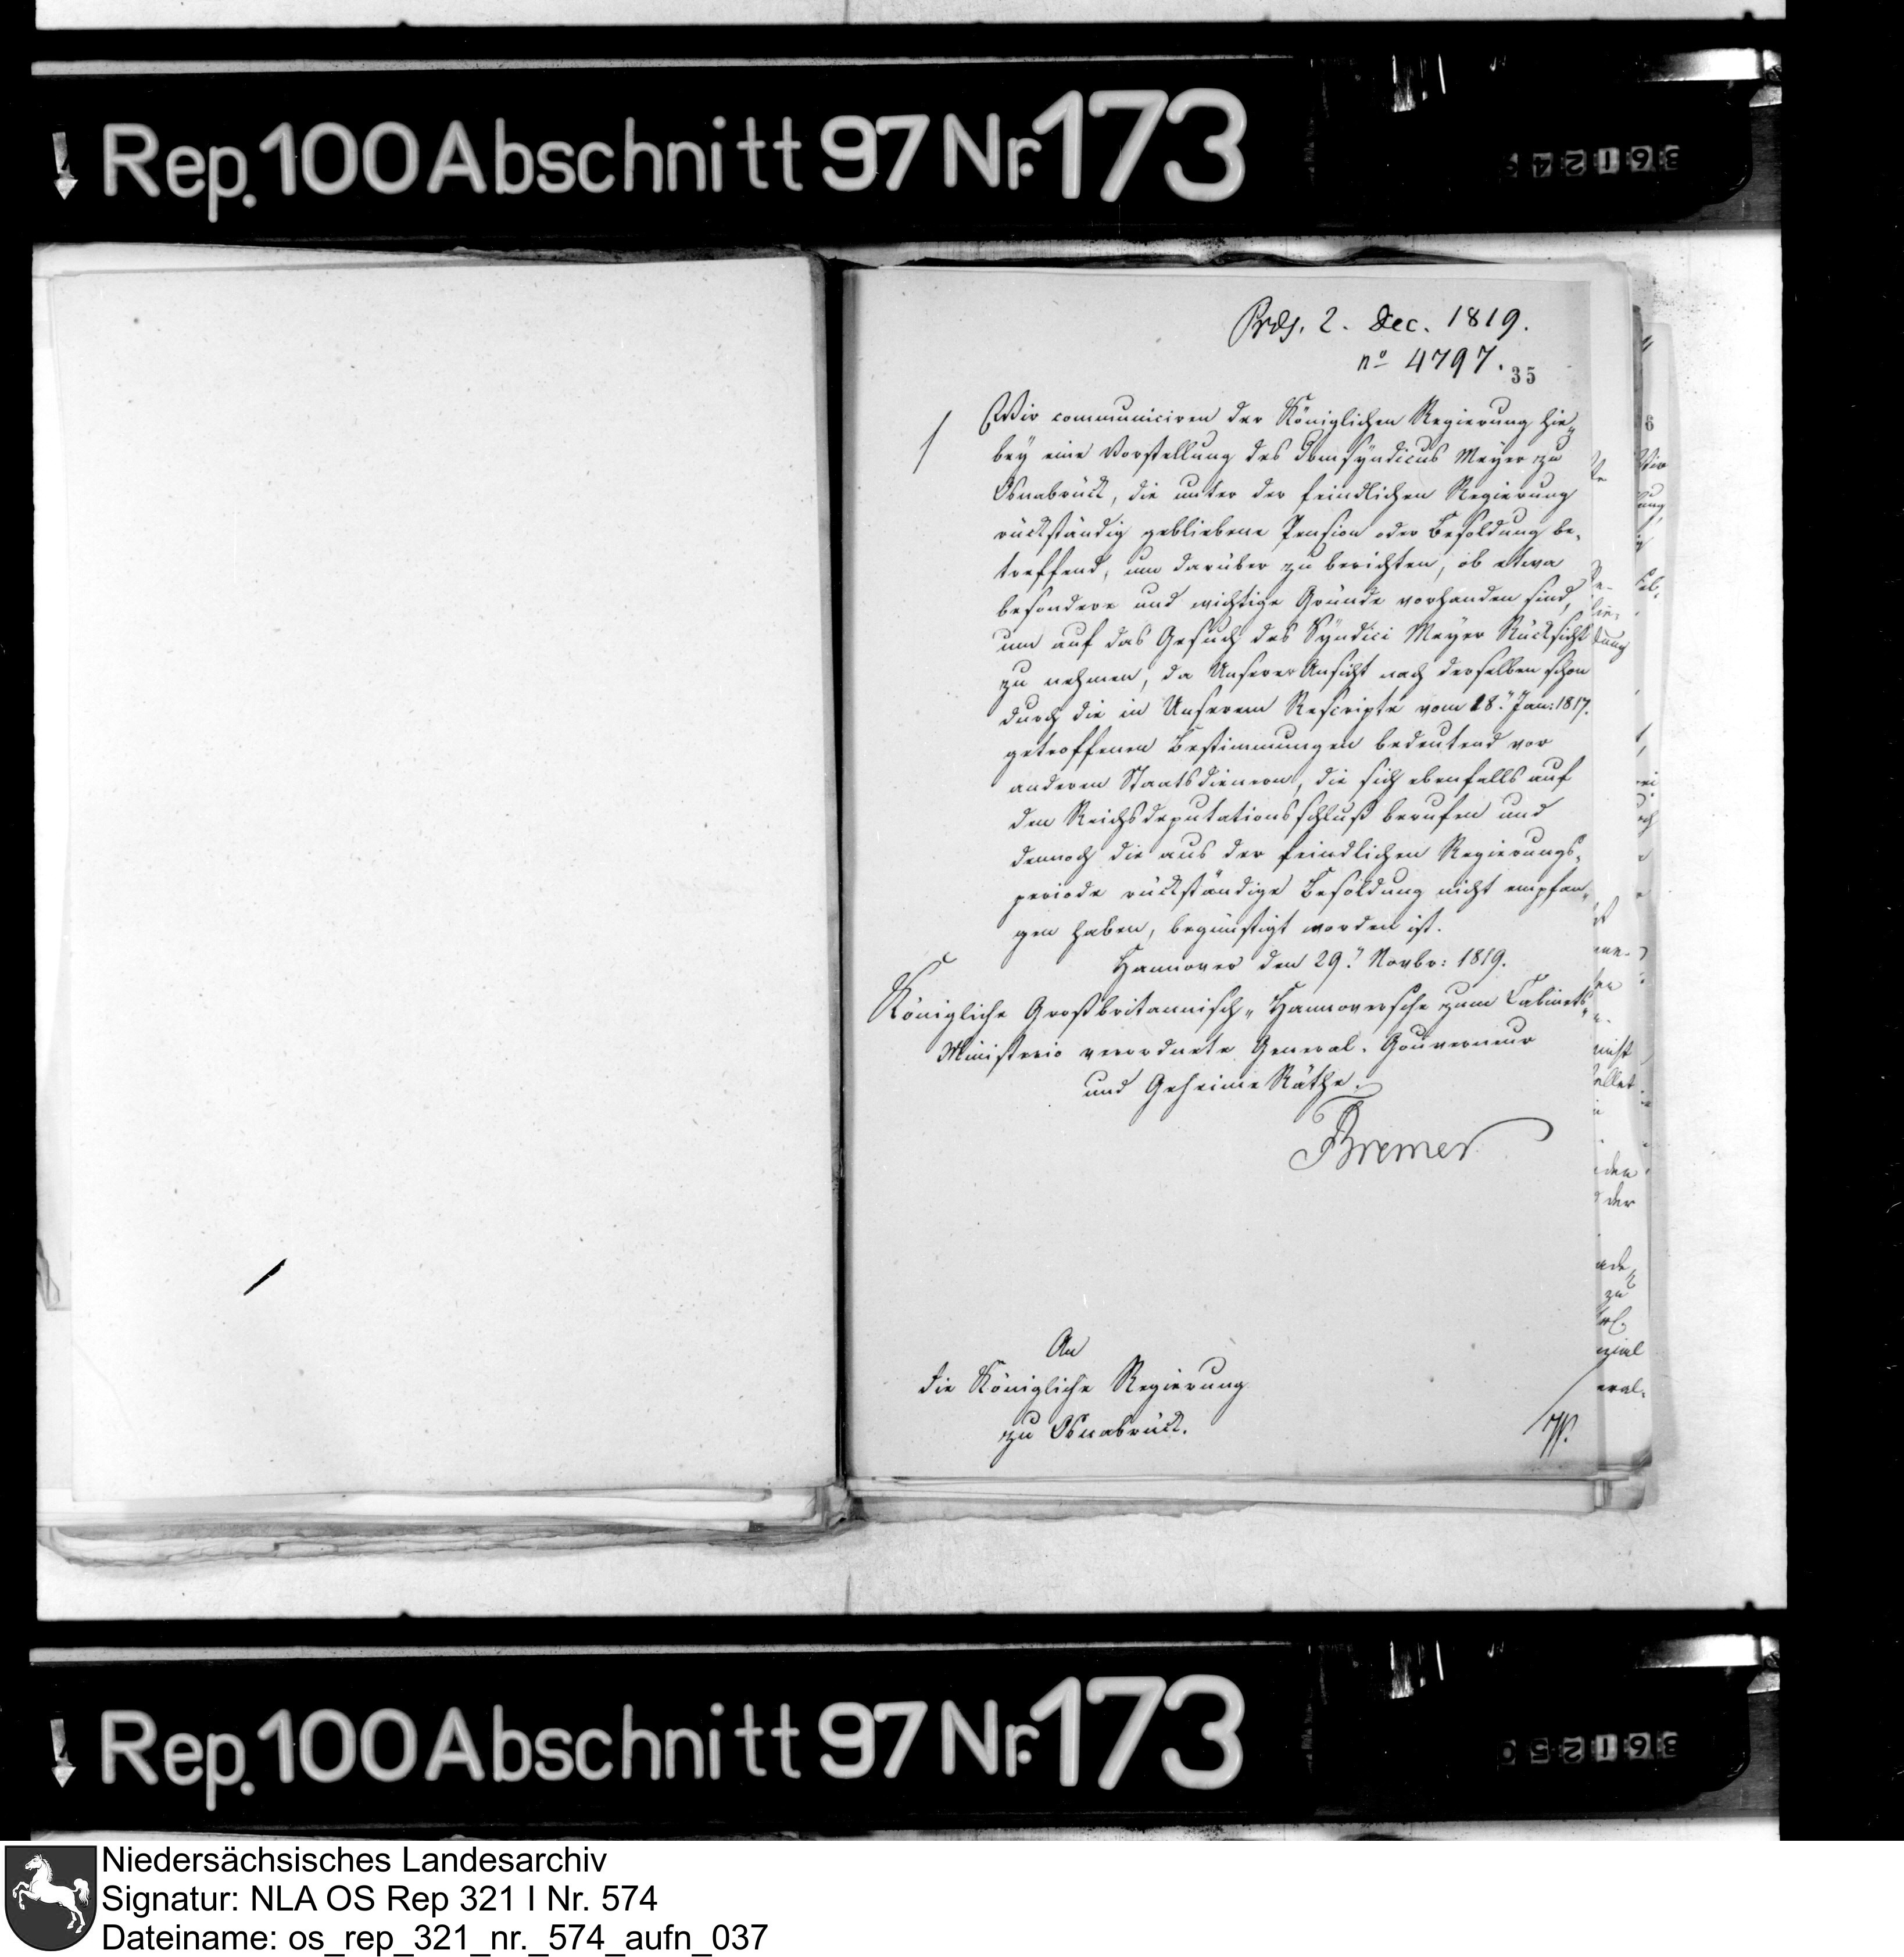 Rep. 100 Abschnitt 97 Nr. 173
Präs. 2. Dec. 1819.
no 4797.
35
Wir communiciren der Königlichen Regierung hie-
bey eine Vorstellung des Domsyndicus Meyer zu
Osnabrück, die unter der feindlichen Regierung
rückständig gebliebene Pension oder Besoldung be-
treffend, um darüber zu berichten, ob etwa
besondere und wichtige Gründe vorhanden sind,
um auf das Gesuch des Syndici Meyer Rücksicht
zu nehmen, da Unserer Ansicht nach derselben schon
durch die in Unserem Rescripte vom 28. Jan: 1817.
getroffenen Bestimmungen bedeutend vor
anderen Staatsdienern, die sich ebenfalls auf
den Reichsdeputationsschluß berufen und
dennoch die aus der feindlichen Regierungs-
periode rückständige Besoldung nicht empfan-
gen haben, begünstigt worden ist.
Hannover den 29. Novbr: 1819.
Königliche Großbritannisch-Hannoversche zum Cabinets-
Ministerio verordnete General-Gouverneur
und Geheime Räthe.
Bremer
An
die Königliche Regierung
zu Osnabrück.
Rep. 100 Abschnitt 97 Nr. 173
Niedersächsisches Landesarchiv
Signatur: NLA OS Rep 321 I Nr. 574
Dateiname: os_rep_321_nr._574_aufn_037